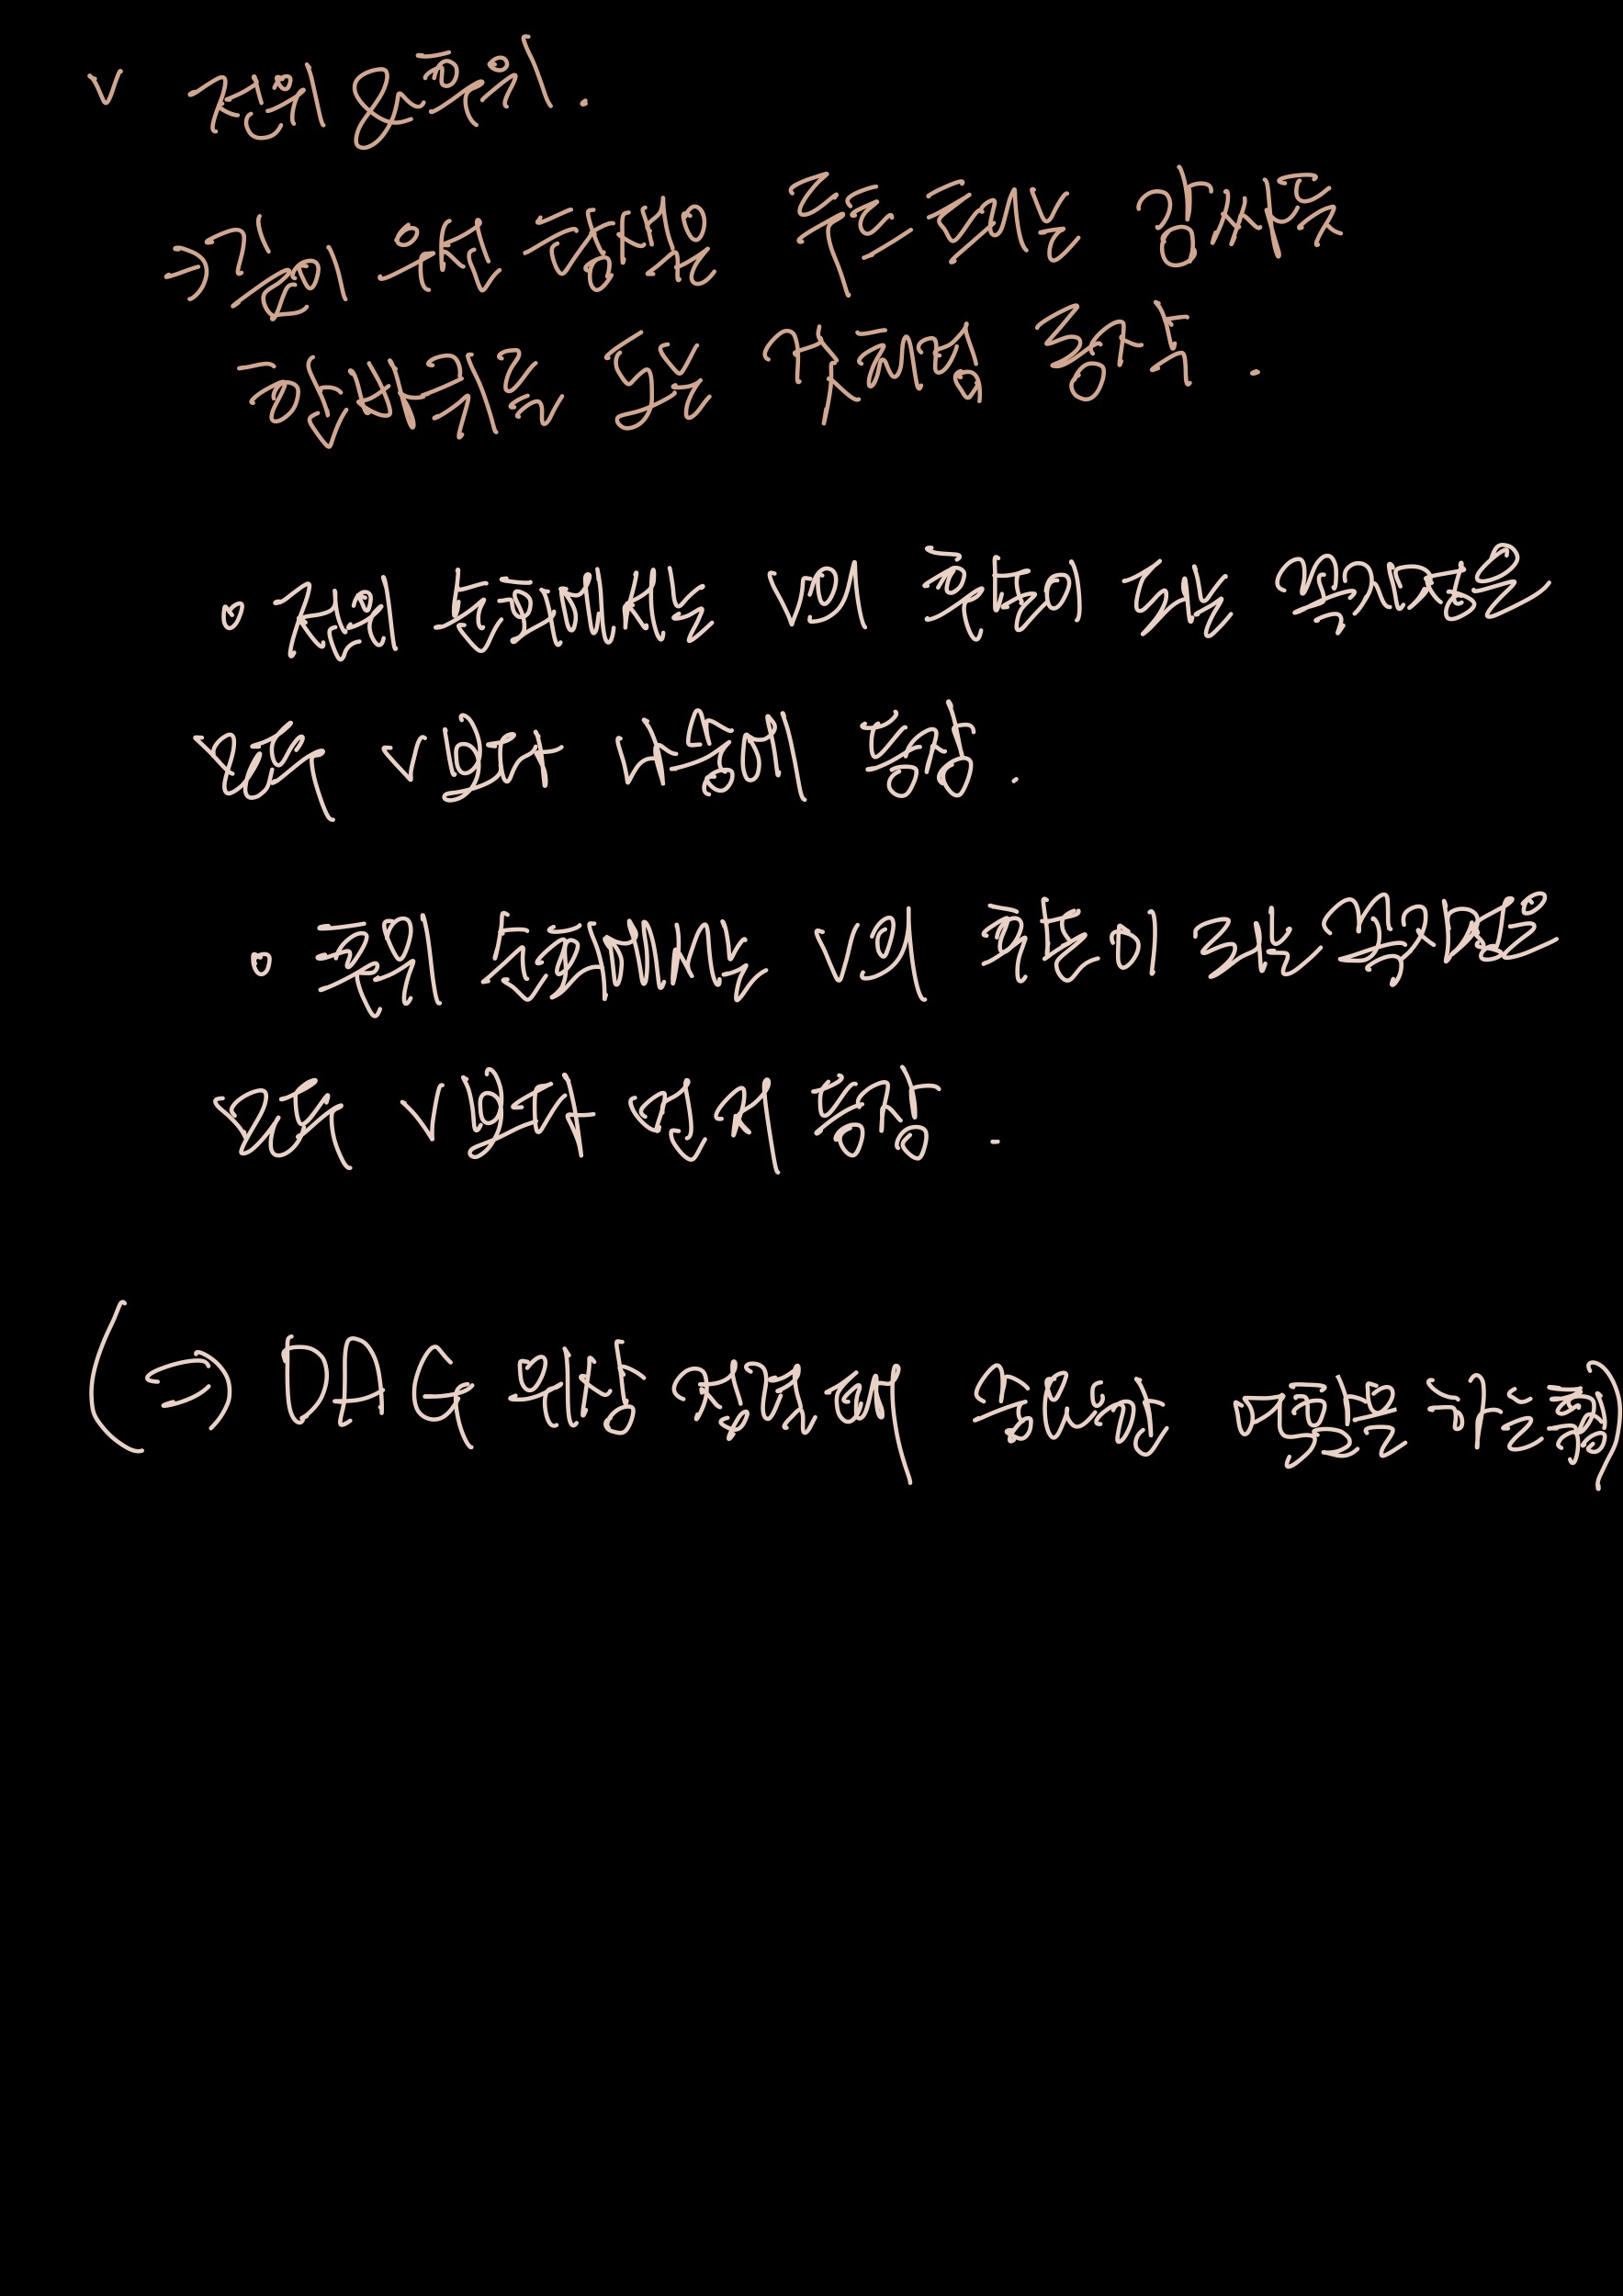 v 전위 & 후위.
→ 깊이 우선 탐색은 루트 트리는 감싸듯
한바퀴를 도는 것처럼 동작.
o 전위 순회에서는 v의 후손이 되는 꼭지점은
모두 v보다 나중에 등장.
o 후위 순회에서는 v의 후손이 되는 꼭지점은
모두 v보다 먼저 등장.
(→ DAG 위상 정렬에 중요한 역할을 하는)